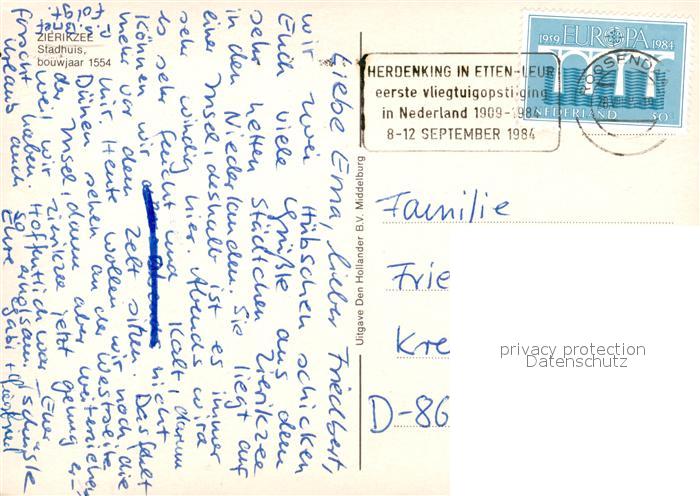 ZIERIKZEE
Stadhuis,
bouwjaar 1554
Liebe Erna, lieber Friedbert,
wir zwei Hübschen schicken
Euch viele Grüße aus dem
sehr netten Städtchen Zierikzee
in den Niederlanden. Sie liegt auf
einer Insel, deshalb ist es immer
sehr windig hier. Abends wird
es sehr feucht und kalt, darum
können wir nicht
mehr vor dem Zelt sitzen. Das fällt
mir. Heute wollen wir noch die
Dünen sehen an der Westseite
der Insel, dann aber weiterziehen,
weil wir Zierikzee jetzt genug er-
forscht haben. Hoffentlich war Euer
Urlaub auch so
Eure Gabi + Siegfried
Uitgave Den Hollander B.V. Middelburg
HERDENKING IN ETTEN-LEUR
eerste vliegtuigopstijging
in Nederland 1909-1984
8-12 SEPTEMBER 1984
1959 EUROPA 1984
NEDERLAND 50
ROOSENDA
Familie
Frie
Kre
D-86
privacy protection
Datenschutz